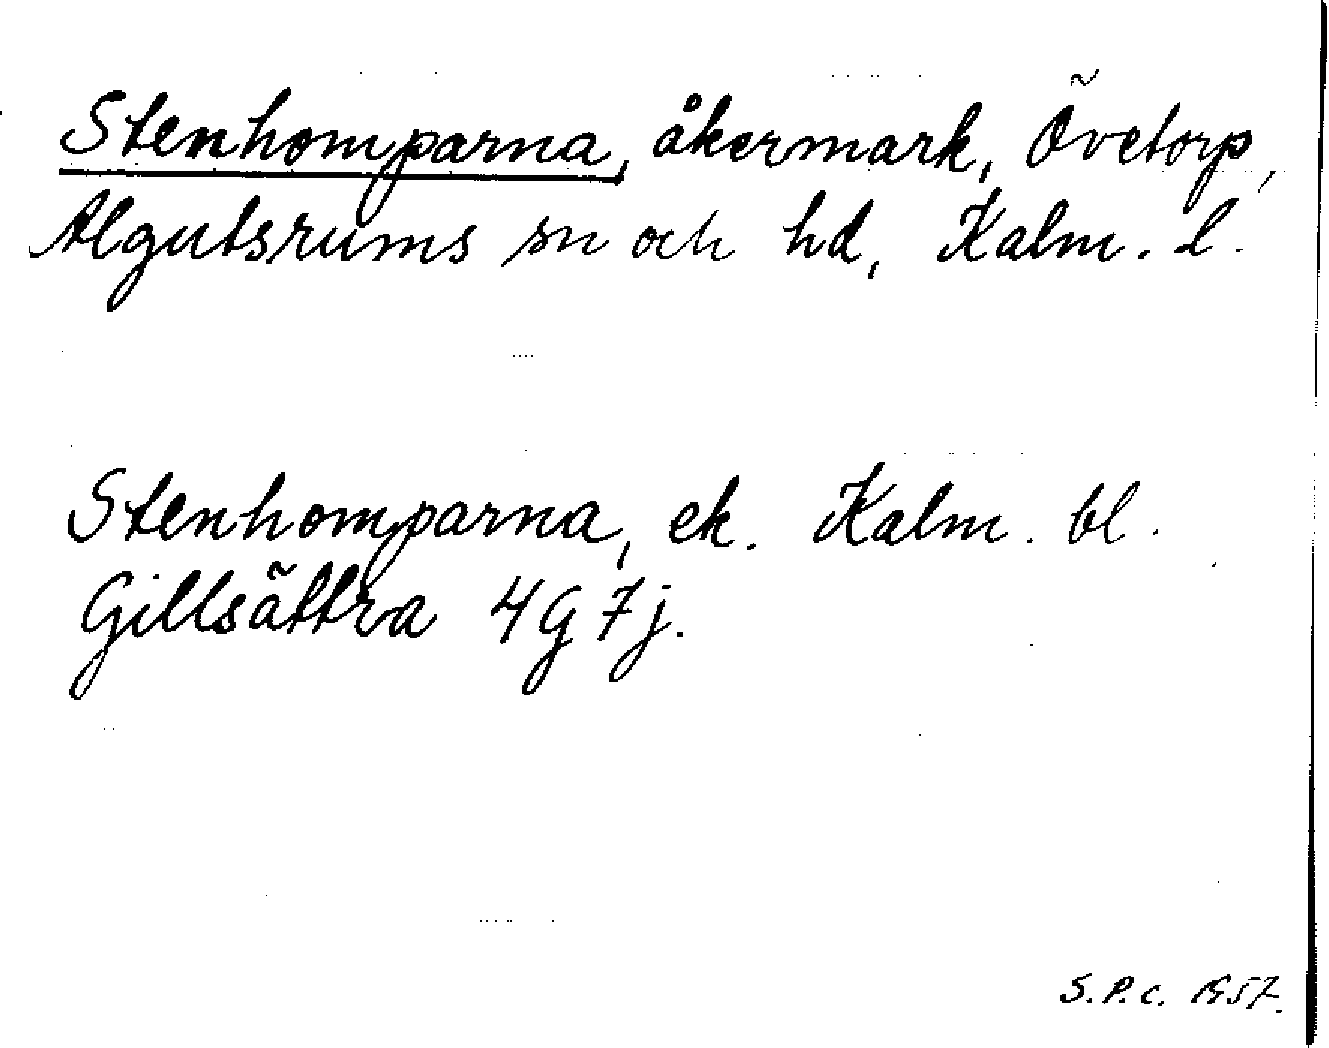 Stenhomparna, åkermark, Övetorp,
Algutsrums sn och hd, Kalm. l.
Stenhomparna, ek. Kalm. bl.
Gillsättra 4G7j.
S.P.C. 1957.